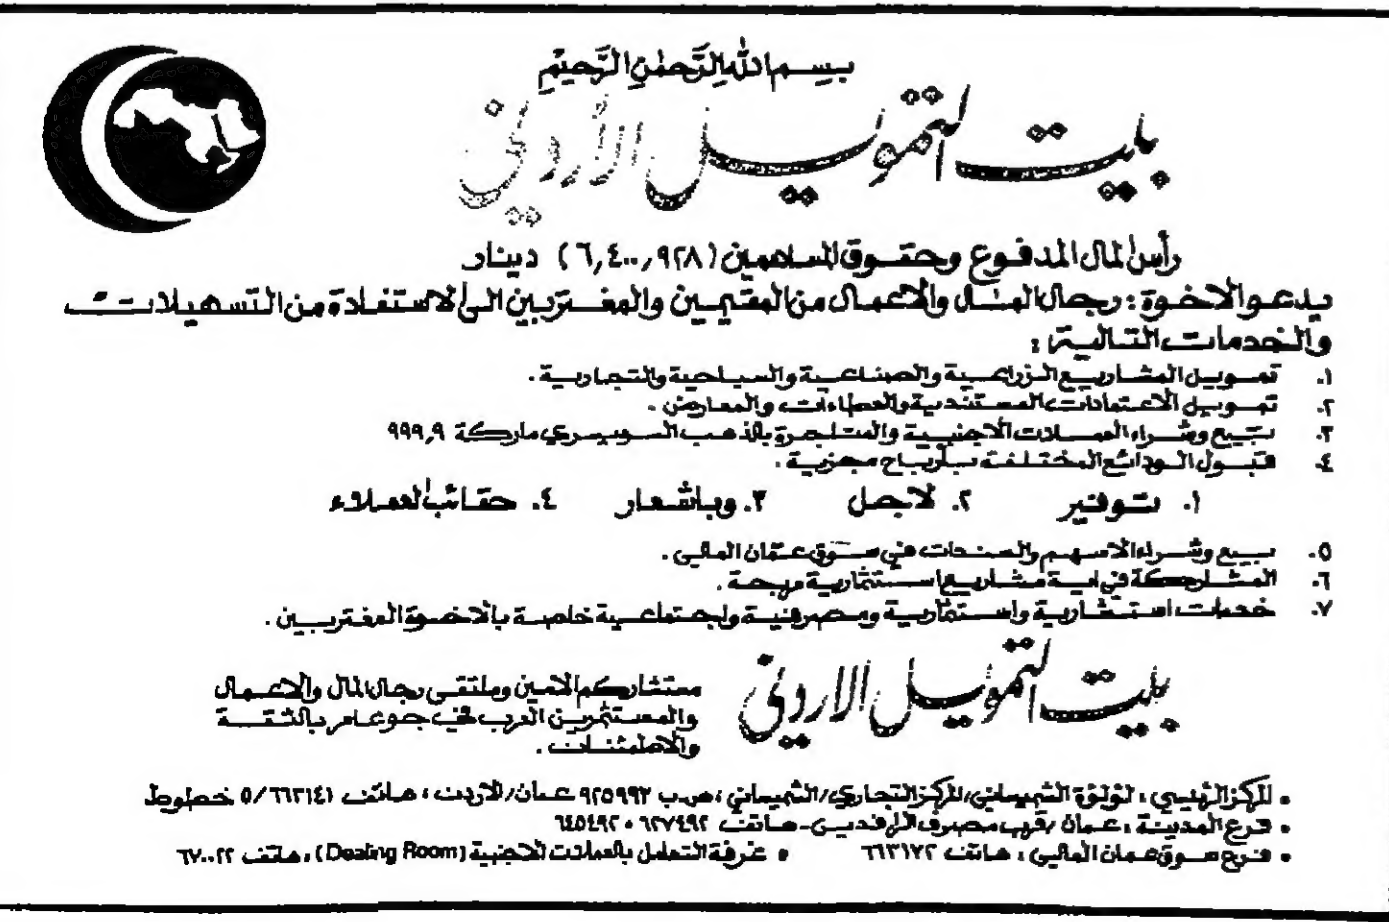 بسم الله الرحمن الرحيم
بيت التمويل الأردني
رأس المال المدفوع وحقوق المساهمين (٦,٤٠٠,٩٢٨) دينار
يدعو الاخوة : رجال المال والاعمال من المقيمين والمغتربين الى الاستفادة من التسهيلات
والخدمات التالية :
١. تمويل المشاريع الزراعية والصناعية والسياحية والتجارية .
٢. تمويل الاعتمادات المستندية والعطاءات والمعارض .
٣. بيع وشراء العملات الاجنبية والمتاجرة بالذهب السويسري ماركة ٩٩٩,٩
٤. قبول الودائع المختلفة بأرباح مجزية .
١. توفير ٢. لاجل ٣. وباشعار ٤. حقائب العملاء
٥. بيع وشراء الاسهم والسندات في سوق عمّان المالي .
٦. المشاركة في اية مشاريع استثمارية مربحة .
٧. خدمات استشارية واستثمارية ومصرفية واجتماعية خاصة بالاخوة المغتربين .
بيت التمويل الاردني
مستشاركم الامين وملتقى رجال المال والاعمال
والمستثمرين العرب في جو عامر بالثقة
والاطمئنان .
• المركز الرئيسي : لؤلؤة الشميساني/المركز التجاري/الشميساني ، ص.ب ٩٢٥٩٩٢ عمان/الاردن ، هاتف ٥/٦٦٣١٤١ خطوط
• فرع المدينة : عمان / قرب مصرف الرافدين - هاتف ٦٢٧٤٩٢ ، ٦٤٥٤٩٢
• فرع سوق عمان المالي : هاتف ٦٦٣١٧٢ • غرفة التعامل بالعملات الاجنبية (Dealing Room) ، هاتف ٦٧٠٠٢٢